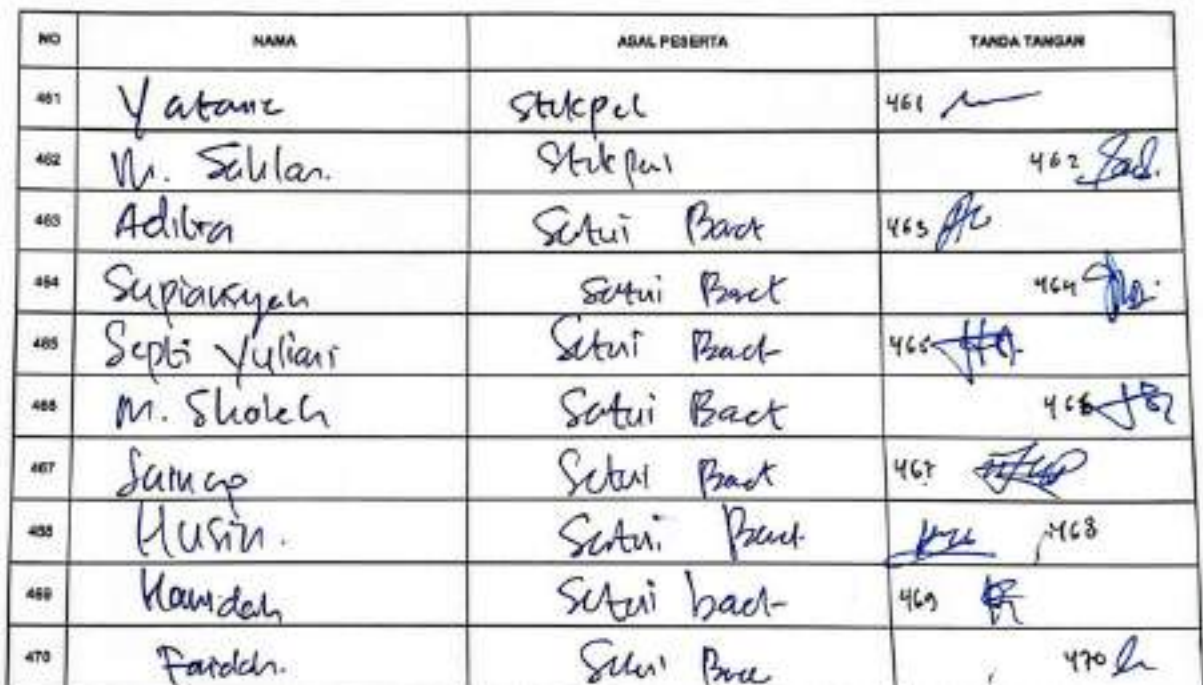 NO NAMA ASAL PESERTA TANDA TANGAN
461 Yatane Stekpel 461
462 M. Sahlan. 462
463 Adibra Satui Barat 463
464 Supiansyah Satui Barat 464
465 Septi Yuliani Satui Barat 465
466 M. Sholeh Satui Barat 466
467 Satui Barat 467
468 Husin. Satui Barat 468
469 Hamidah Satui barat 469
470 Faridah. Satui Barat 470